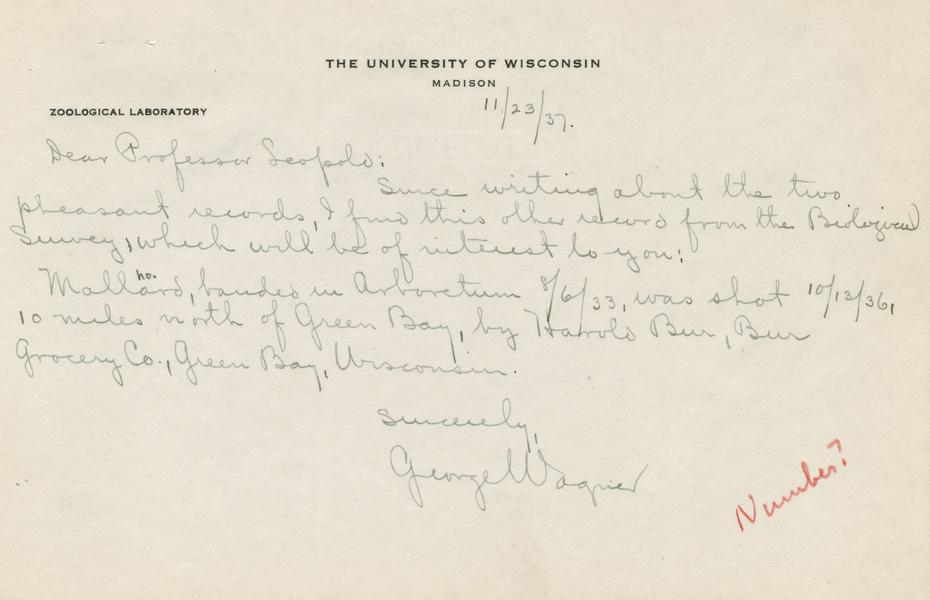 THE UNIVERSITY OF WISCONSIN
MADISON
11/23/37.
ZOOLOGICAL LABORATORY
Dear Professor Leopold:
Since writing about the two
pheasant records, I find this other record from the Biological
Survey, which will be of interest to you:
no.
Mallard, banded in Arboretum 8/6/33, was shot 10/13/36,
10 miles north of Green Bay, by Harold Bur, Bur
Grocery Co., Green Bay, Wisconsin.
Sincerely,
George Wagner
Number?